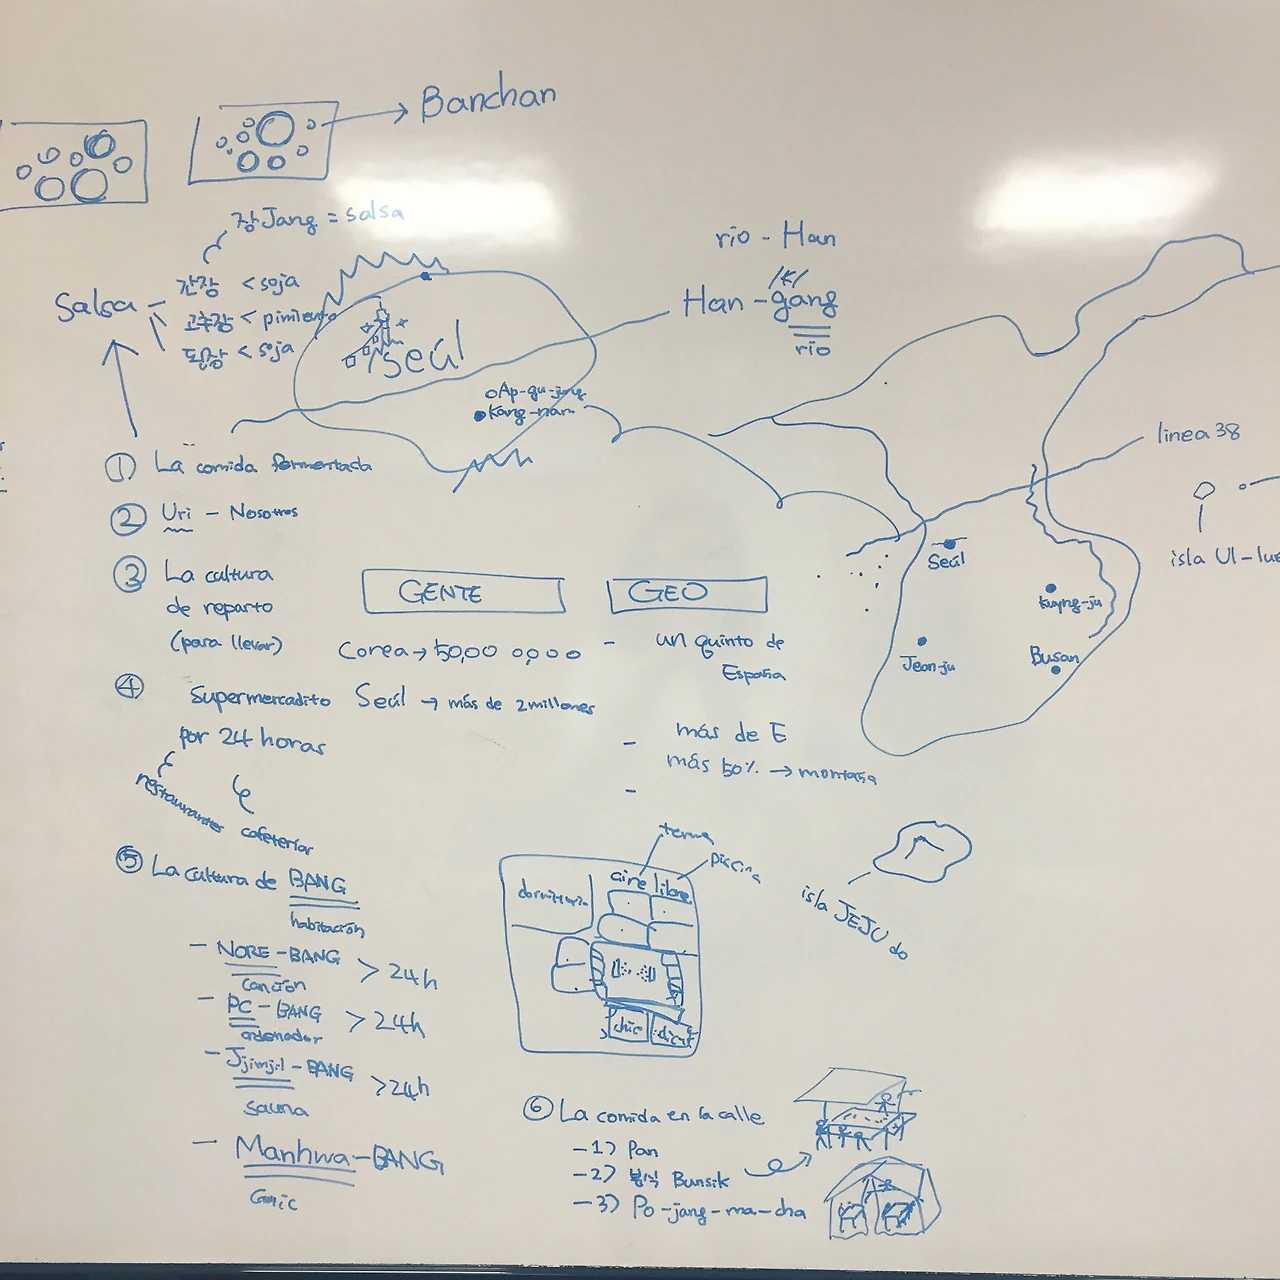 Banchan
장 Jang = salsa
Salsa
간장 < soja
고추장 < pimiento
된장 < soja
Seúl
Ap-gu-jung
Kang-nam
río - Han
/K/
Han-gang
río
linea 38
isla Ul-lue
Seúl
Kyung-ju
Jeon-ju
Busan
isla JEJU do
① La comida fermentada
② Uri - Nosotros
③ La cultura
de reparto
(para llevar)
④ Supermercadito
por 24 horas
restaurantes
cafeterías
GENTE
Corea → 50,00 0,000
Seúl → más de 2 millones
GEO
- un quinto de
España
- más de E
más 50% → montaña
-
⑤ La cultura de BANG
habitación
- NORE-BANG > 24h
canción
- PC-BANG > 24h
ordenador
- Jjimjil-BANG > 24h
sauna
- Manhwa-BANG
comic
terma
piscina
aire libre
chic
⑥ La comida en la calle
-1) Pan
-2) 분식 Bunsik
-3) Po-jang-ma-cha